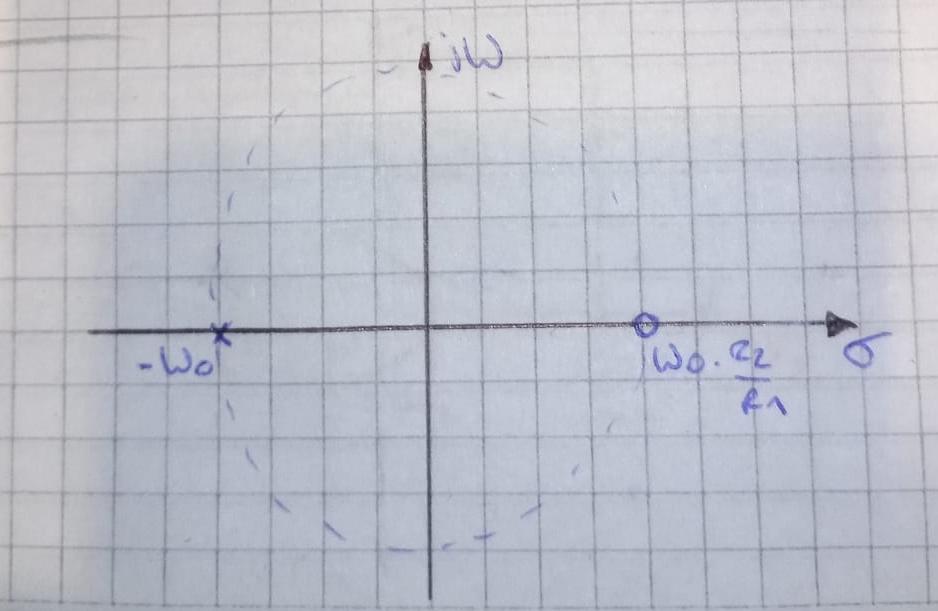 jω
-ω0
ω0 · R2/R1
σ